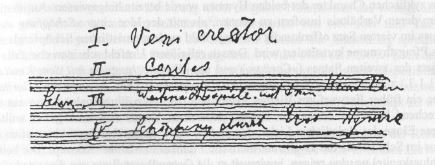 I. Veni creator
II Caritas
Scherz. III Weihnachtspiele. mit dem Kindlein
IV Schöpfung durch Eros Hymne